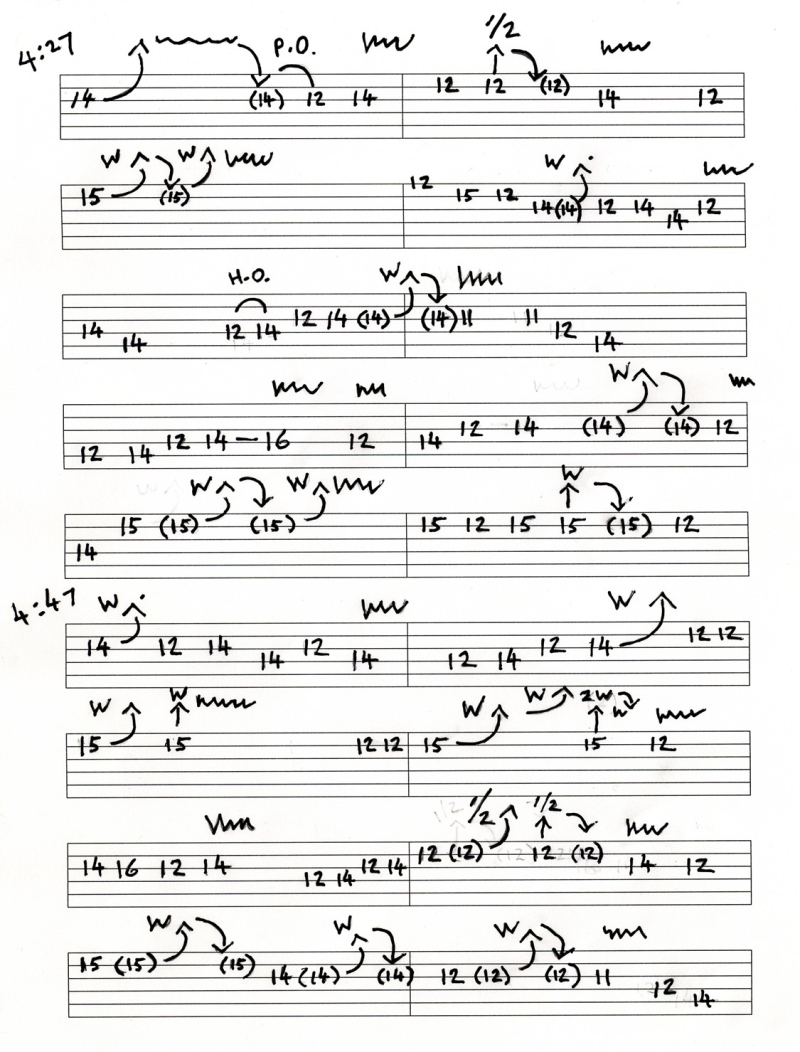 4:27 P.O. 1/2
14 (14) 12 14 12 12 (12) 14 12
W W W
15 (15) 12 15 12 14 (14) 12 14 14 12
H.O. W
14 14 12 14 12 14 (14) (14) 11 11 12 14
W
12 14 12 14 — 16 12 14 12 14 (14) (14) 12
W W W
14 15 (15) (15) 15 12 15 15 (15) 12
4:47 W W
14 12 14 14 12 14 12 14 12 14 12 12
W W W W 2W W
15 15 12 12 15 15 12
1/2 1/2
14 16 12 14 12 14 12 14 12 (12) 12 (12) 14 12
W W W
15 (15) (15) 14 (14) (14) 12 (12) (12) 11 12 14